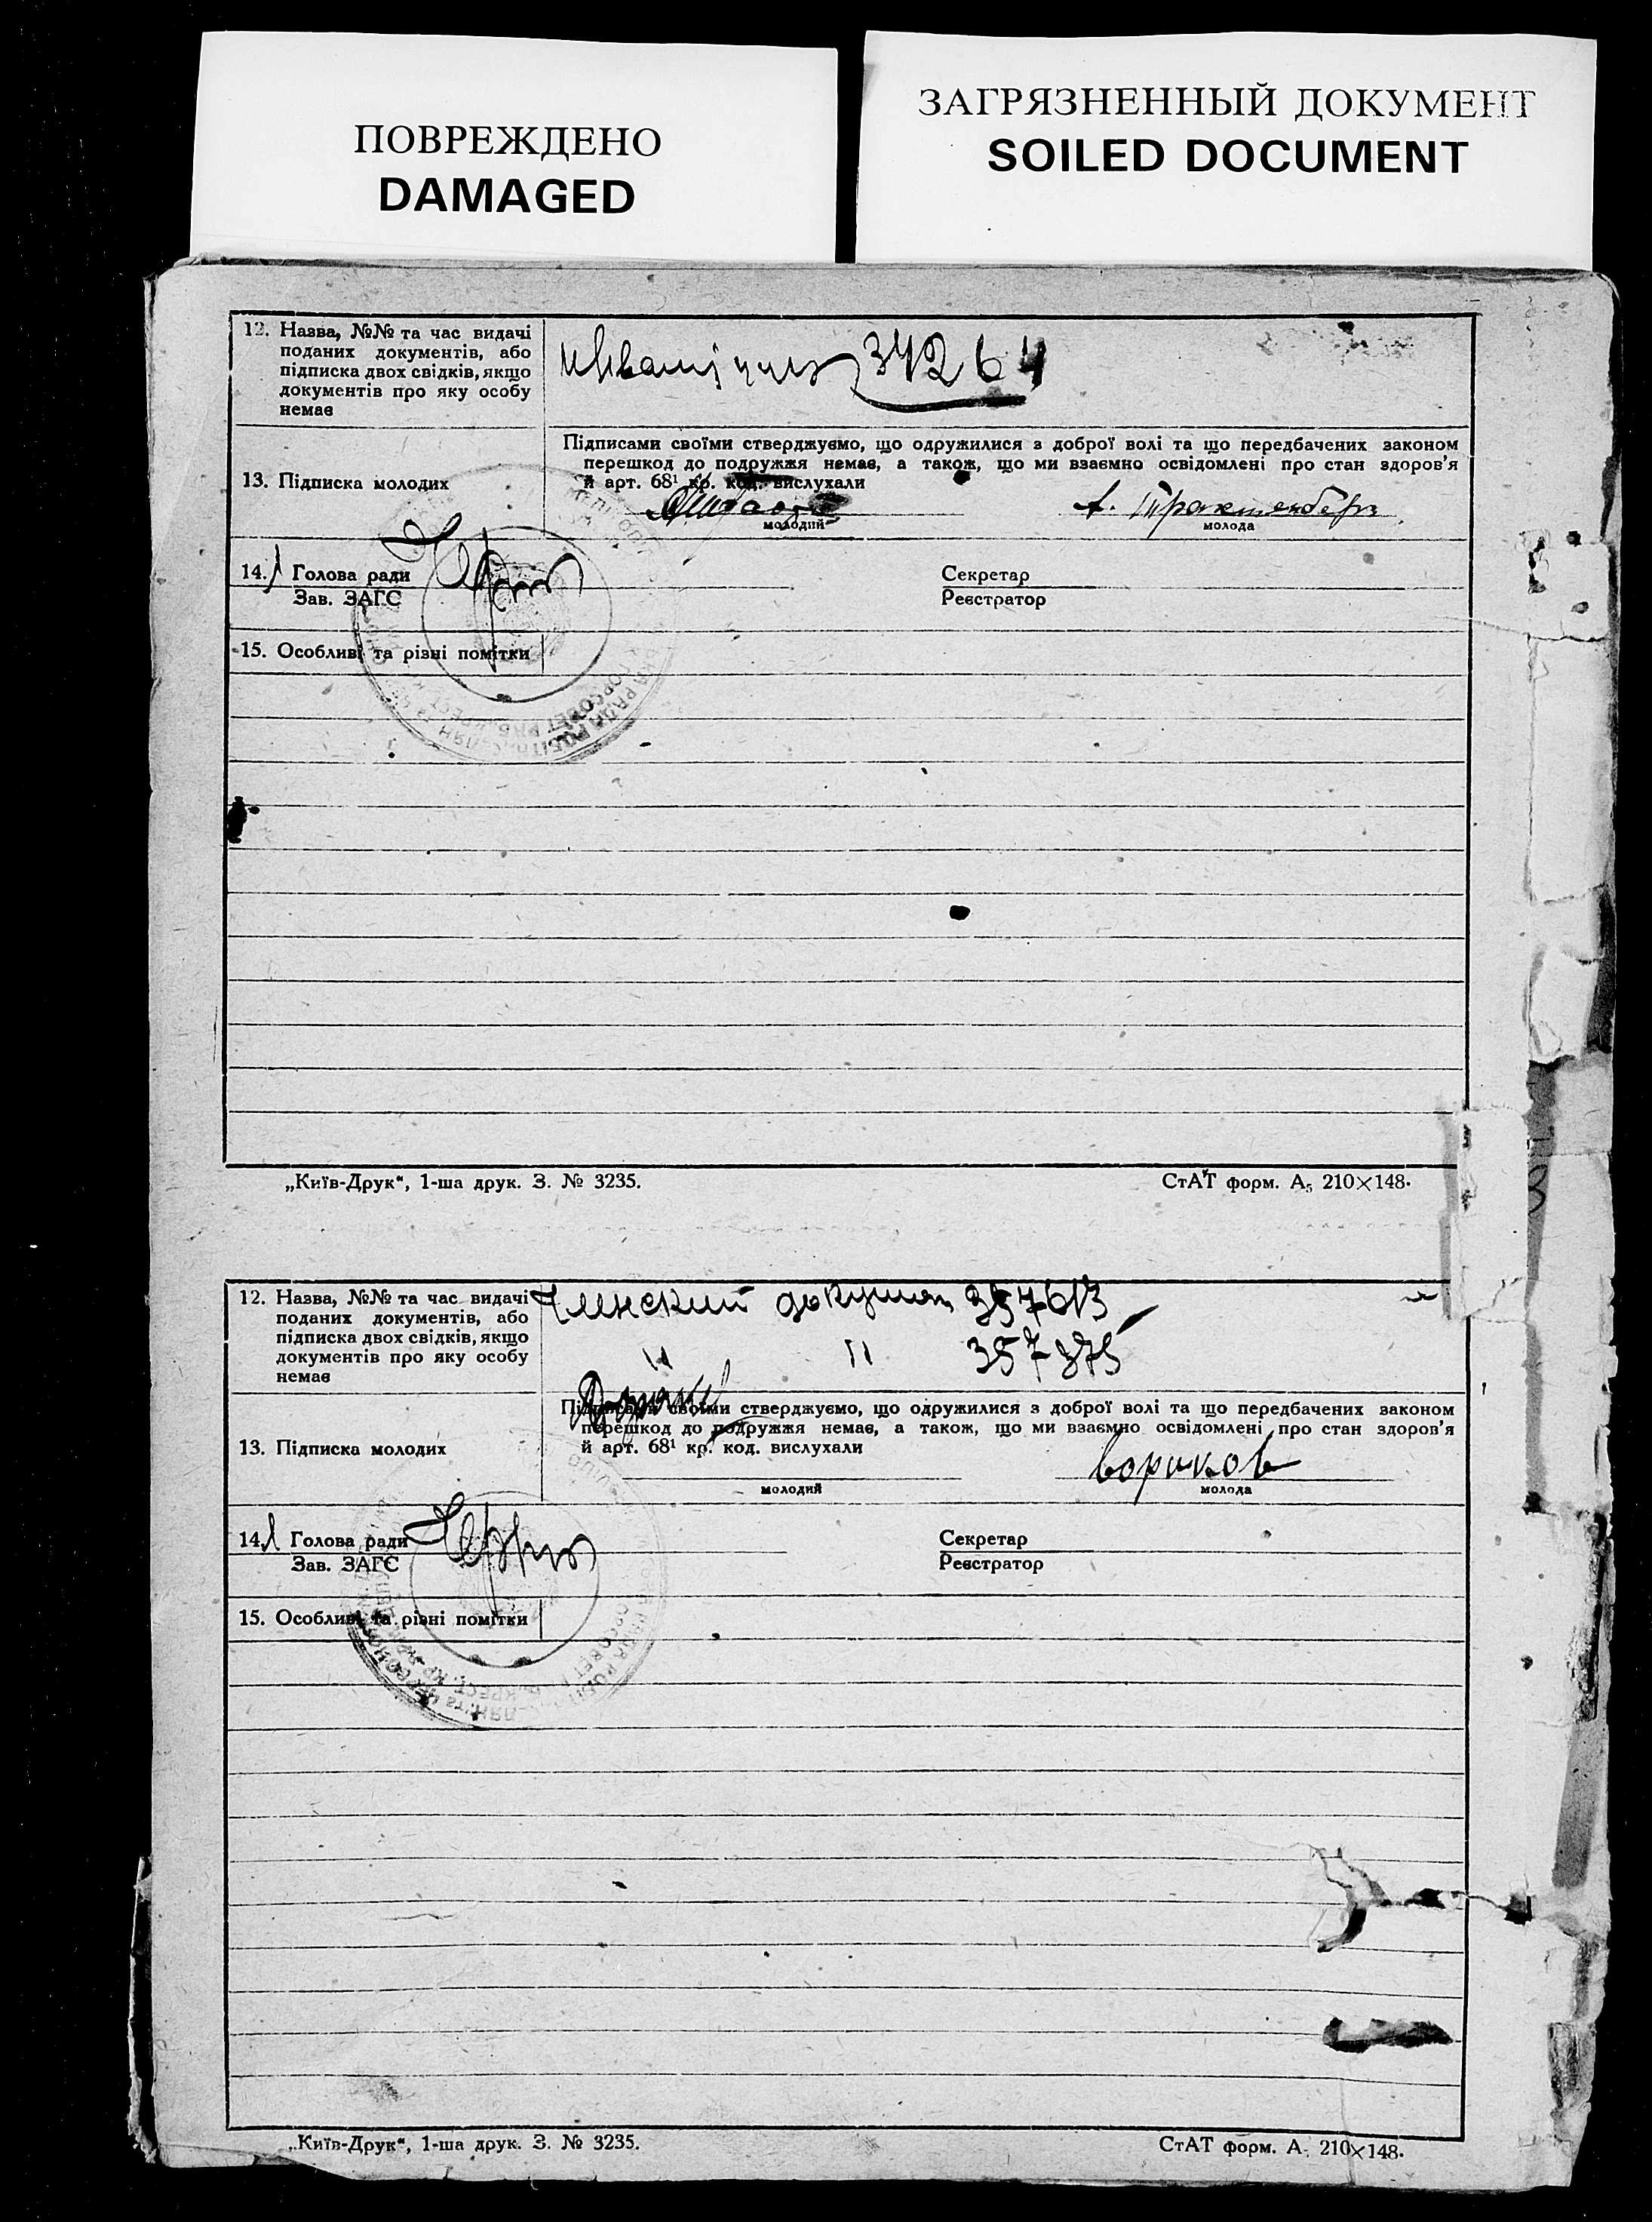 ПОВРЕЖДЕНО
DAMAGED
ЗАГРЯЗНЕННЫЙ ДОКУМЕНТ
SOILED DOCUMENT
12. Назва, №№ та час видачі
поданих документів, або
підписка двох свідків, якщо
документів про яку особу
немає
34264
Підписами своїми стверджуємо, що одружилися з доброї волі та що передбачених законом
перешкод до подружжя немає, а також, що ми взаємно освідомлені про стан здоров'я
й арт. 68¹ кр. код. вислухали
13. Підписка молодих
А. Трахтенберг
молодий
молода
14. Голова ради
Зав. ЗАГС
Секретар
Реєстратор
15. Особливі та різні помітки
„Київ-Друк“, 1-ша друк. З. № 3235.
СтАТ форм. А₅ 210×148.
12. Назва, №№ та час видачі
поданих документів, або
підписка двох свідків, якщо
документів про яку особу
немає
Членский докумен 357613
" " 357875
Підписами своїми стверджуємо, що одружилися з доброї волі та що передбачених законом
перешкод до подружжя немає, а також, що ми взаємно освідомлені про стан здоров'я
й арт. 68¹ кр. код. вислухали
13. Підписка молодих
молодий
молода
14. Голова ради
Зав. ЗАГС
Секретар
Реєстратор
15. Особливі та різні помітки
„Київ-Друк“, 1-ша друк. З. № 3235.
СтАТ форм. А. 210×148.